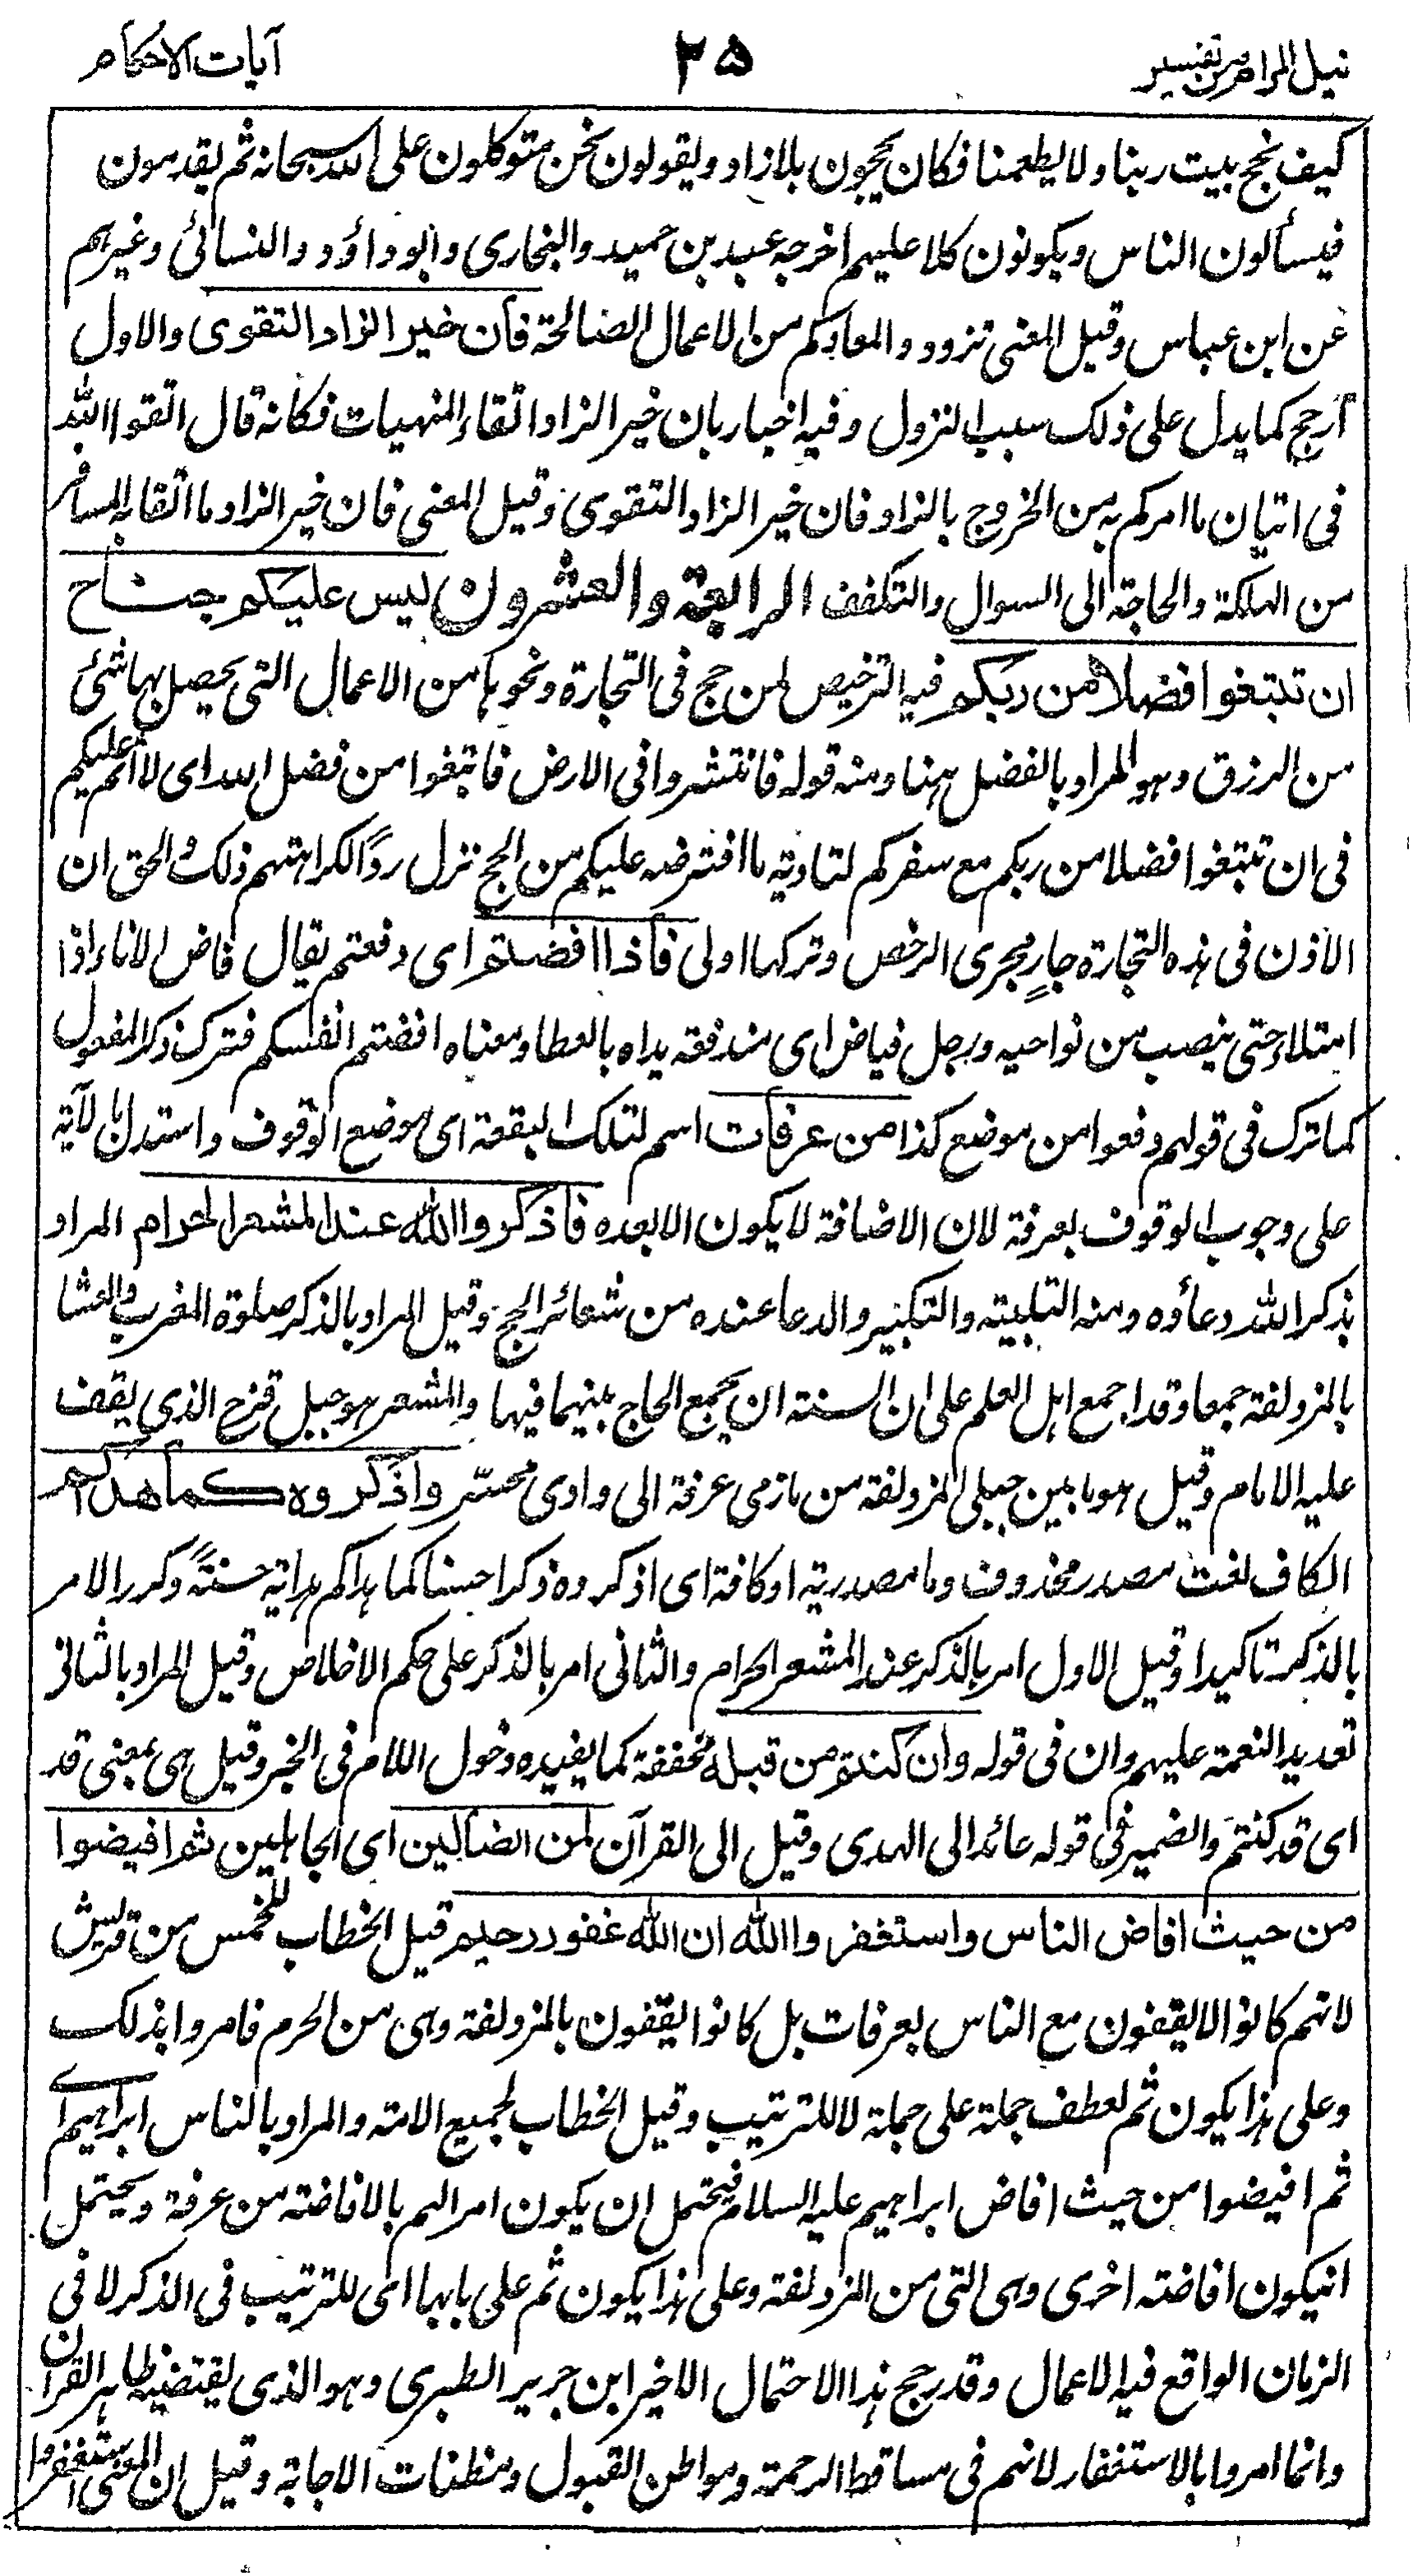 نيل المرام من تفسير
٣٥
آيات الاحكام
كيف نحج بيت ربنا ولا يطعمنا فكان يحجون بلا زاد ويقولون نحن متوكلون على الله سبحانه ثم يقدمون
فيسألون الناس ويكونون كلا عليهم اخرجه عبد بن حميد والبخارى وابو داؤد والنسائى وغيرهم
عن ابن عباس وقيل المعنى تزودوا لمعادكم من الاعمال الصالحة فان خير الزاد التقوى والاول
ارجح كما يدل على ذلك سبب النزول وفيه اخبار بان خير الزاد اتقاء المنهيات فكانه قال اتقوا الله
فى اتيان ما امركم به من الخروج بالزاد فان خير الزاد التقوى وقيل المعنى فان خير الزاد ما اتقا به المسافر
من الهلكة والحاجة الى السوال والتكفف الرابعة والعشرون ليس عليكم جناح
ان تبتغوا فضلا من ربكم فيه الترخيص لمن حج فى التجارة ونحوها من الاعمال التى يحصل بها شئ
من الرزق وهو المراد بالفضل هنا ومنه قوله فانتشروا فى الارض فابتغوا من فضل الله اى لا اثم عليكم
فى ان تبتغوا فضلا من ربكم مع سفركم لتادية ما افترضه عليكم من الحج نزل ردًا لكراهتهم ذلك والحق ان
الاذن فى هذه التجارة جارٍ مجرى الرخص وتركها اولى فاذا افضتم اى دفعتم يقال فاض الاناء اذا
امتلاء حتى ينصب من نواحيه ورجل فياض اى مندفقه يداه بالعطا ومعناه افضتم انفسكم فترك ذكر المفعول
كما ترك فى قولهم دفعوا من موضع كذا من عرفات اسم لتلك البقعة اى موضع الوقوف واستدل بالآية
على وجوب الوقوف بعرفة لان الاضافة لا يكون الا بعده فاذكروا الله عند المشعر الحرام المراد
بذكر الله دعاؤه ومنه التلبية والتكبير والدعا عنده من شعائر الحج وقيل المراد بالذكر صلوة المغرب والعشا
بالمزدلفة جمعا وقد اجمع اهل العلم على ان السنة ان يجمع الحاج بينهما فيها والمشعر هو جبل قزح الذي يقف
عليه الامام وقيل هو ما بين جبلى المزدلفة من مازمى عرفة الى وادى محسّر واذكروه كما هداكم
الكاف لغت مصدر محذوف وما مصدرية او كافة اى اذكروه ذكرا حسنا كما هداكم هداية حسنةً وكرر الامر
بالذكر تاكيدا وقيل الاول امر بالذكر عند المشعر الحرام والثانى امر بالذكر على حكم الاخلاص وقيل المراد بالثانى
تعديد النعمة عليهم وان فى قوله وان كنتم من قبله مخففة كما يفيده دخول اللام فى الخبر وقيل هى بمعنى قد
اى قد كنتم والضمير فى قوله عائد الى الهدى وقيل الى القرآن لمن الضالين اى الجاهلين ثم افيضوا
من حيث افاض الناس واستغفروا الله ان الله غفور رحيم قيل الخطاب للخمس من قريش
لانهم كانوا لا يقفون مع الناس بعرفات بل كانوا يقفون بالمزدلفة وهى من الحرم فامروا بذلك
وعلى هذا يكون ثم لعطف جملة على جملة لا للترتيب وقيل الخطاب لجميع الامة والمراد بالناس ابراهيم اى
ثم افيضوا من حيث افاض ابراهيم عليه السلام فيحتمل ان يكون امرا لهم بالافاضة من عرفة ويحتمل
انيكون افاضة اخرى وهى التى من المزدلفة وعلى هذا يكون ثم على بابها اى للترتيب فى الذكر لا فى
الزمان الواقع فيه الاعمال وقد رجح هذا الاحتمال الاخير ابن جرير الطبرى وهو الذى يقتضيه ظاهر القرآن
وانما امروا بالاستغفار لانهم فى مساقط الرحمة ومواطن القبول ومظنات الاجابة وقيل ان المعنى استغفروا